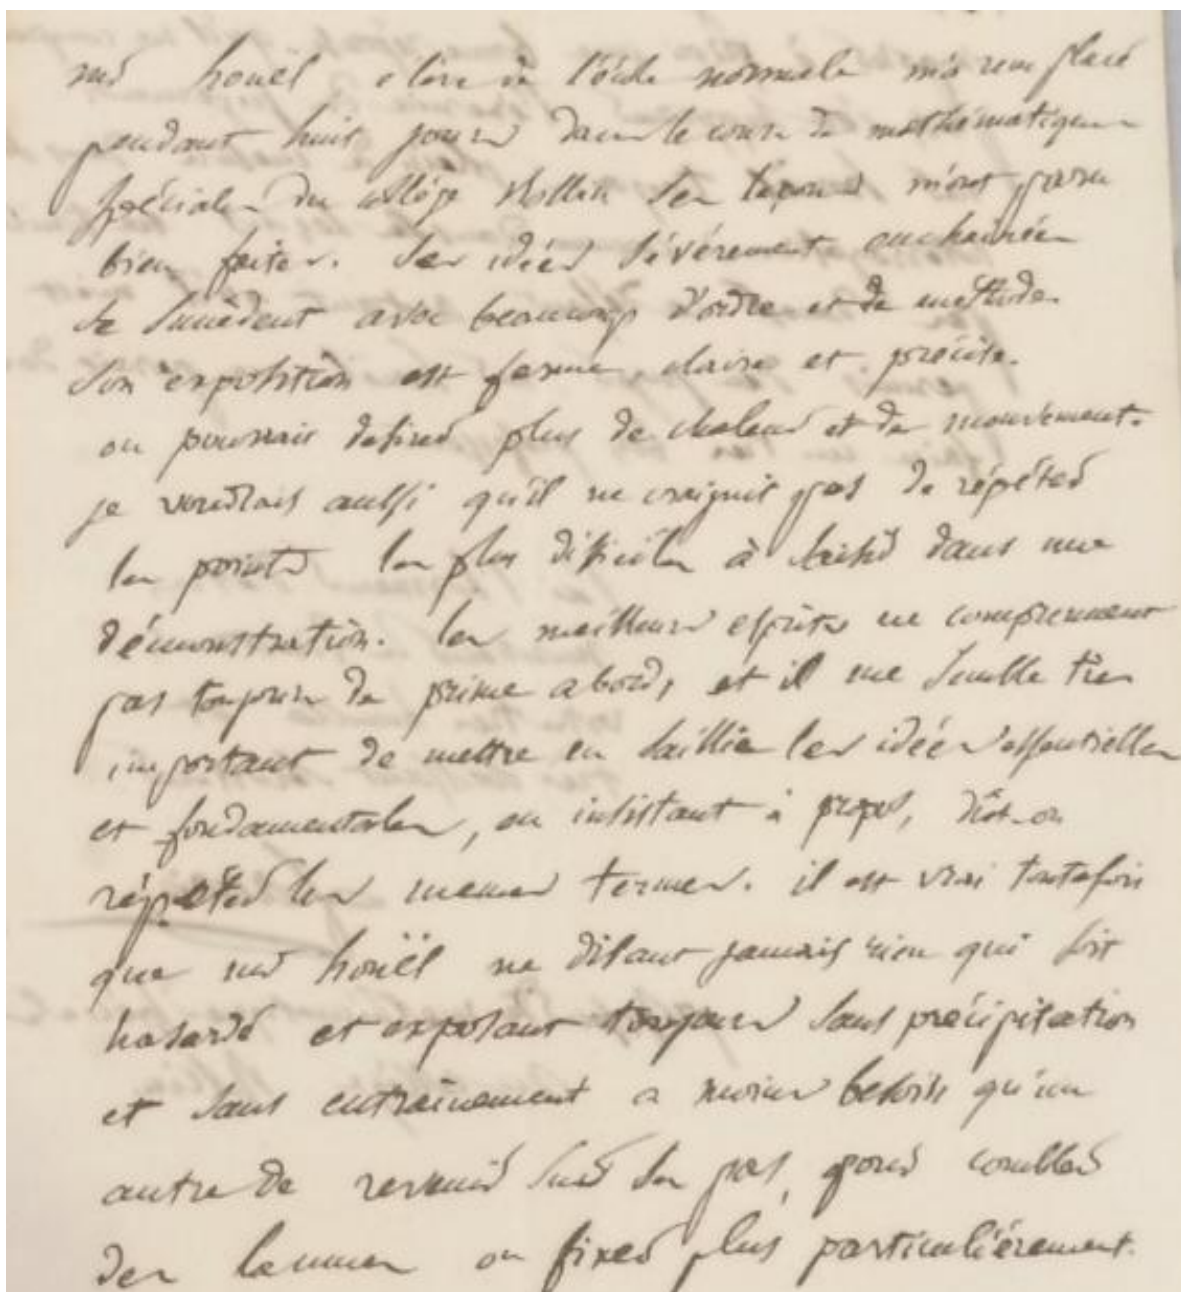 mr houël élève de l'école normale m'a remplacé
pendant huit jours dans le cours de mathématiques
spéciales du collège Rollin ses leçons m'ont paru
bien faites. Ses idées sévèrement enchainées
se succèdent avec beaucoup d'ordre et de méthode.
Son exposition est ferme, claire et précise.
on pourrait desirer plus de chaleur et de mouvement.
je voudrais aussi qu'il ne craignit pas de répéter
les points les plus difficiles à saisir dans une
démonstration. les meilleurs esprits ne comprennent
pas toujours de prime abord, et il me semble très
important de mettre en saillie les idées essentielles
et fondamentales, en insistant à propos, dût-on
répéter les memes termes. il est vrai toutefois
que mr houël ne disant jamais rien qui soit
hasardé et exposant toujours sans précipitation
et sans entraînement a moins besoin qu'un
autre de revenir sur ses pas, pour combler
des lacunes ou fixer plus particulièrement.